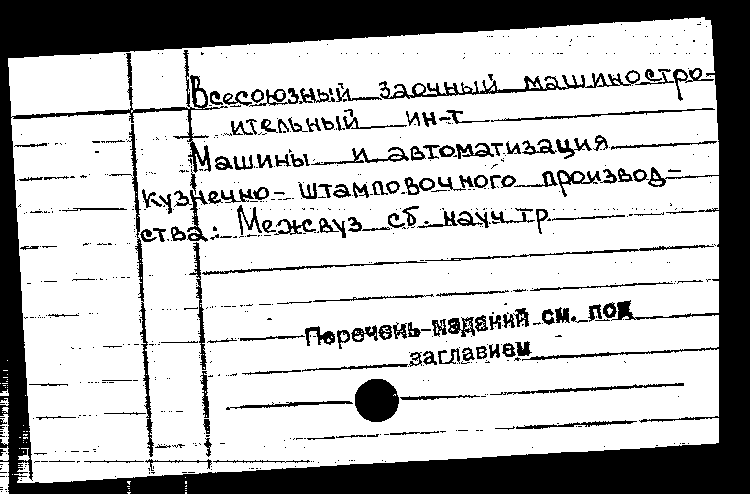 Всесоюзный заочный машиностро-
ительный ин-т
Машины и автоматизация
кузнечно-штамповочного производ-
ства: Межвуз сб. науч тр
Перечень изданий см. под
заглавием